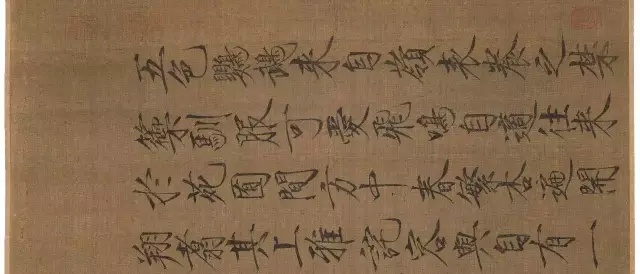 五色鸚鵡來自嶺表養之禁
籞馴服可愛飛鳴自適往來
於苑囿間方中春繁杏遍開
翔翥其上雅詫容與自有一